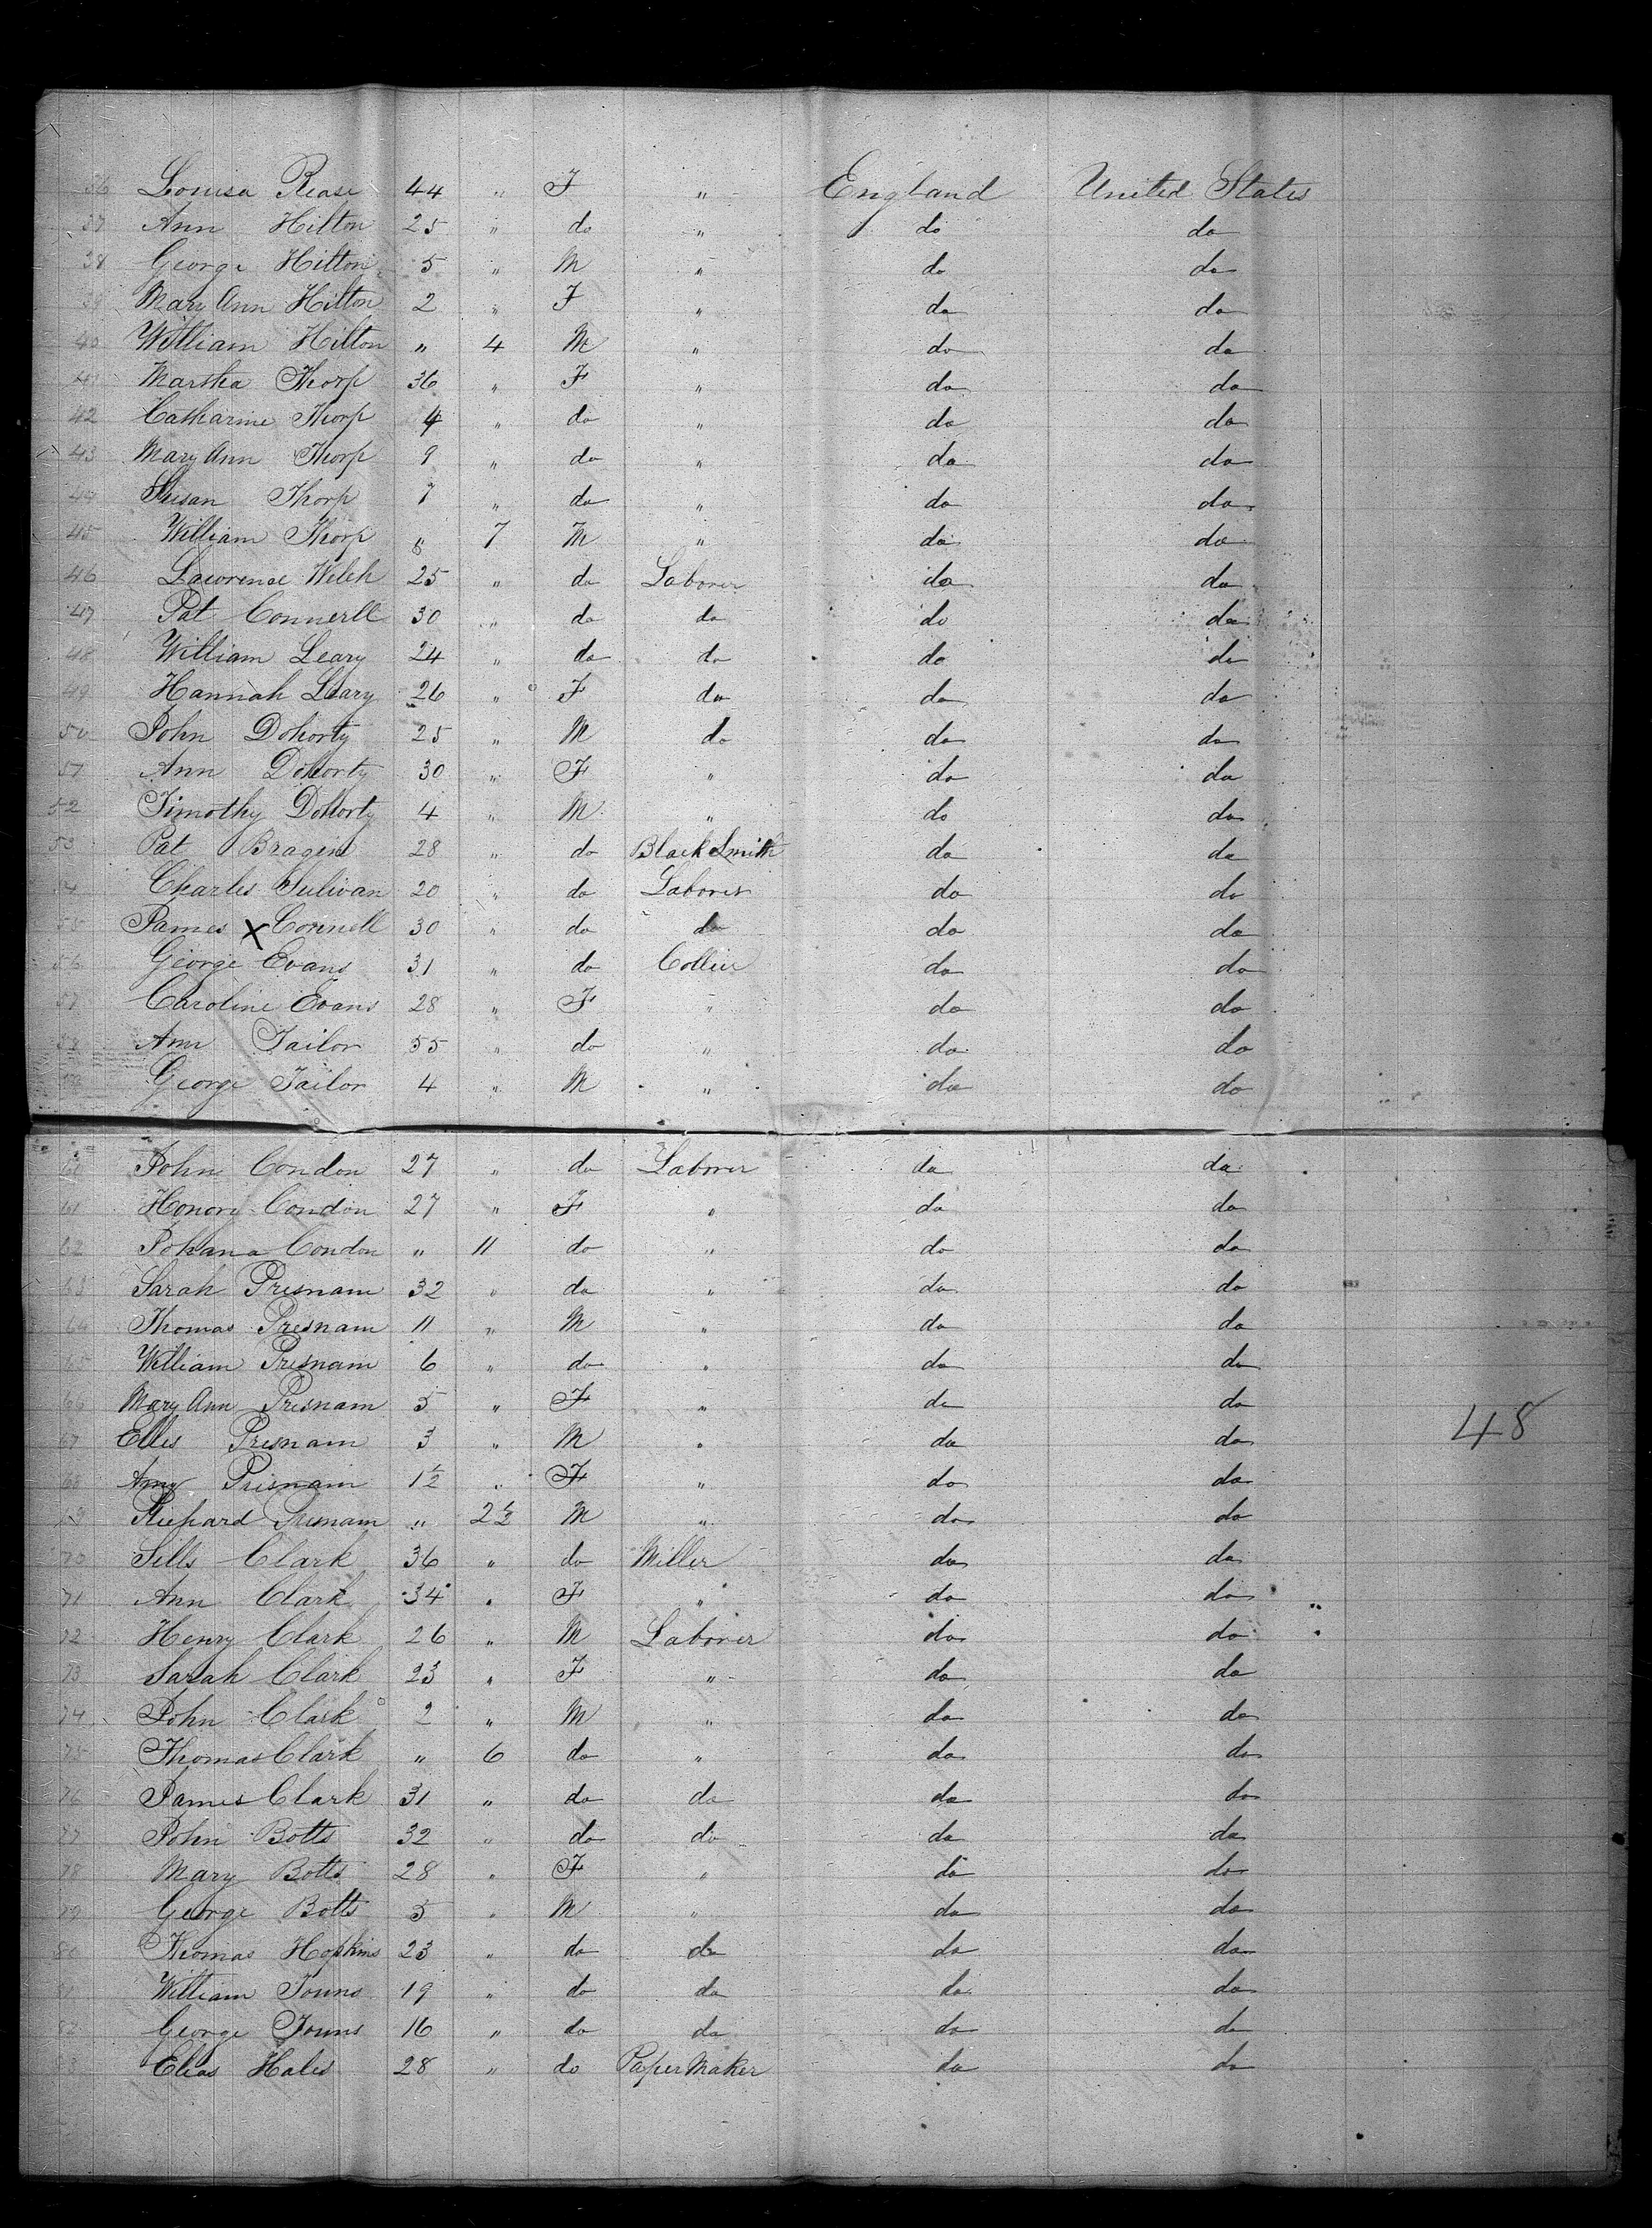 36 Louisa Rease 44 " F " England United States
37 Ann Hilton 25 " do " do do
38 George Hilton 5 " M " do do
39 Mary Ann Hilton 2 " F " do do
40 William Hilton " 4 M " do do
41 Martha Thorp 36 " F " do do
42 Catharine Thorp 4 " do " do do
43 Mary Ann Thorp 9 " do " do do
44 Susan Thorp 7 " do " do do
45 William Thorp " 7 M " do do
46 Lawrense Welch 25 " do Laborer do do
47 Pat Connerll 30 " do do do do
48 William Leary 24 " do do do do
49 Hannah Leary 26 " F do do do
50 John Dohorty 25 " M do do do
51 Ann Dohorty 30 " F " do do
52 Timothy Dohorty 4 " M " do do
53 Pat Bragin 28 " do Black Smith do do
54 Charles Sulivan 20 " do Laborer do do
55 James X Connell 30 " do do do do
56 George Evans 31 " do Collier do do
57 Caroline Evans 28 " F " do do
58 Ann Tailor 55 " do " do do
59 George Tailor 4 " M " do do
60 John Condon 27 " do Laborer do do
61 Honory Condon 27 " F " do do
62 Johana Condon " 11 do " do do
63 Sarah Presnam 32 " do " do do
64 Thomas Presnam 11 " M " do do
65 William Presnam 6 " do " do do
66 Mary Ann Presnam 5 " F " do do
67 Elles Presnam 3 " M " do do
48
68 Amy Presnam 1½ " F " do do
69 Richard Presnam " 2½ M " do do
70 Sills Clark 36 " do Miller do do
71 Ann Clark 34 " F " do do
72 Henry Clark 26 " M Laborer do do
73 Sarah Clark 23 " F " do do
74 John Clark 2 " M " do do
75 Thomas Clark " 6 do " do do
76 James Clark 31 " do do do do
77 John Botts 32 " do do do do
78 Mary Botts 28 " F " do do
79 George Botts 5 " M " do do
80 Thomas Hopkins 23 " do do do do
81 William Founs 19 " do do do do
82 George Founs 16 " do do do do
83 Elias Hales 28 " do Paper Maker do do